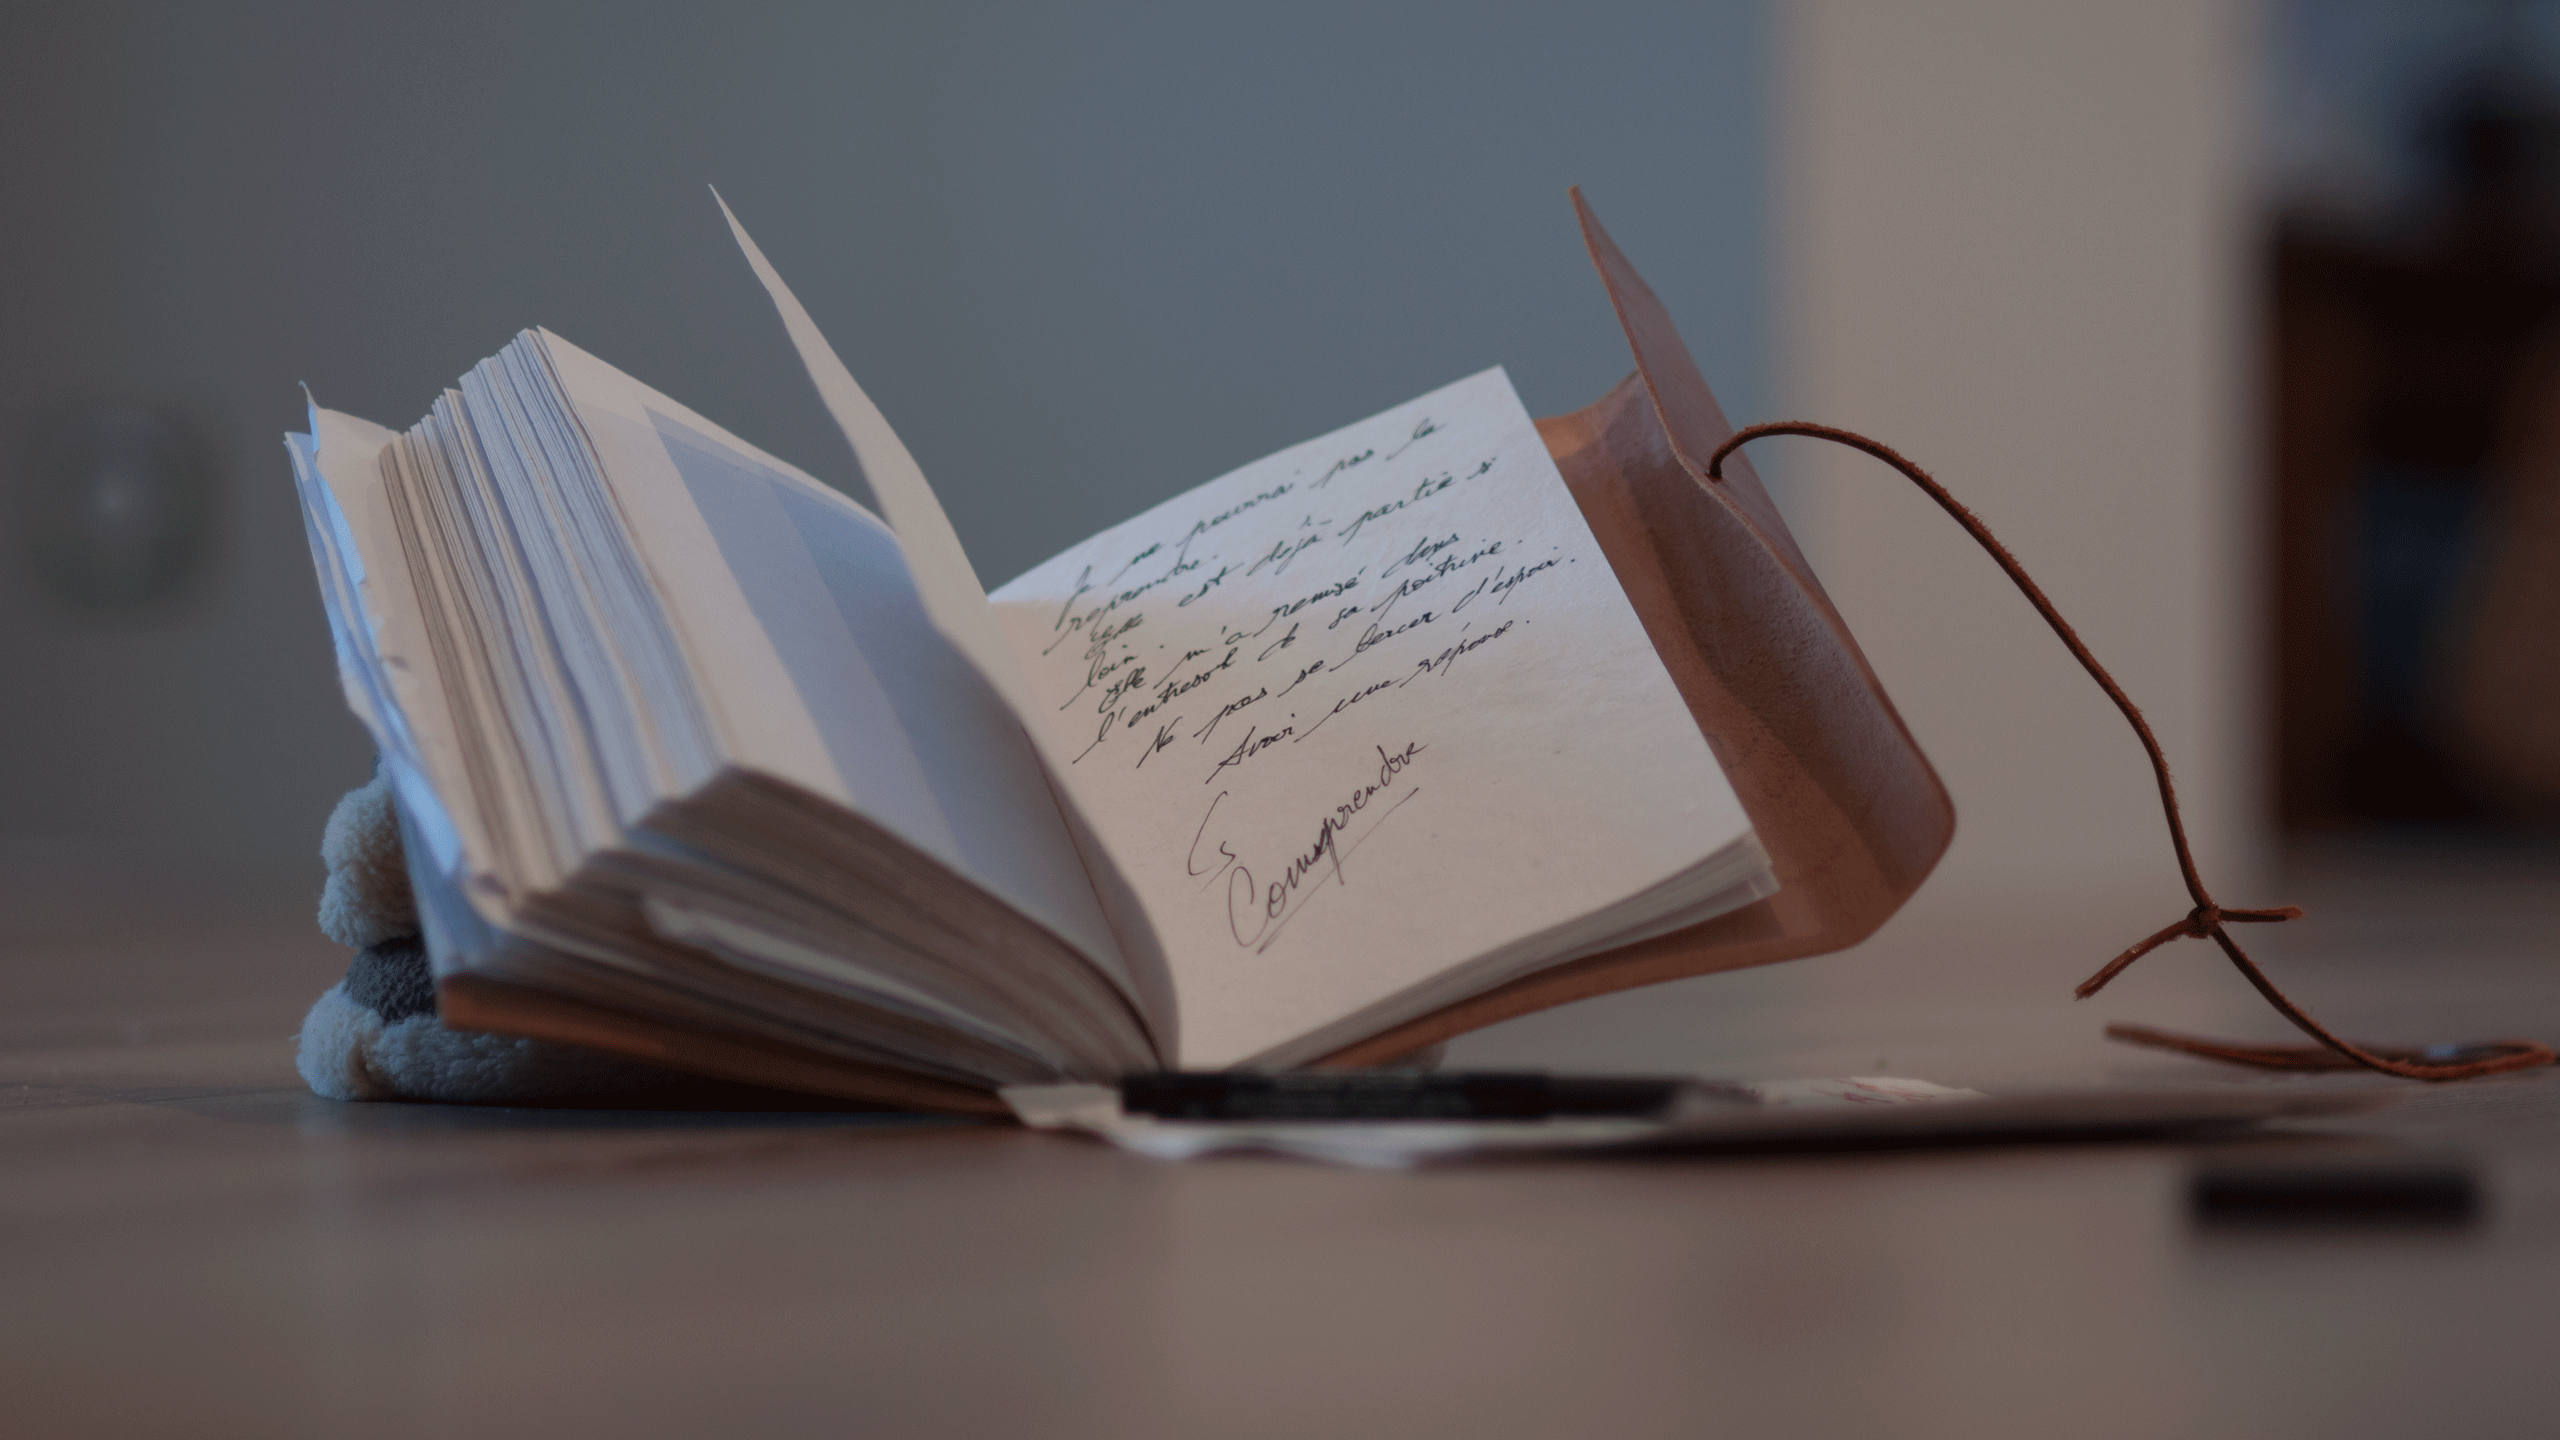 Je ne pourrai pas la
reprendre.
Elle est déjà partie si
loin.
Elle m'a remisé dans
l'entresort de sa poitrine.
Ne pas se bercer d'espoir.
Avoir une réponse.
Comprendre